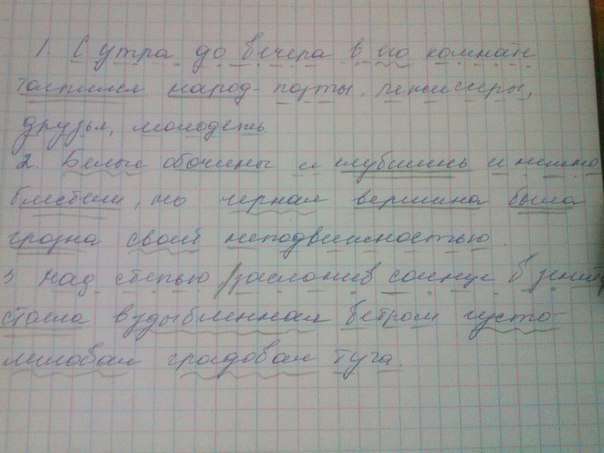 1. С утра до вечера в его комнате
толпился народ - порты, режисеры,
друзья, молодеть
2. Белые обочины и клубились и нежно
блестели, но черная вершина была
грозна своей неподвижностью.
3 Над степью заслонив солнце в зените
стояла вздыбленная ветром густо-
лиловая градовая туча.